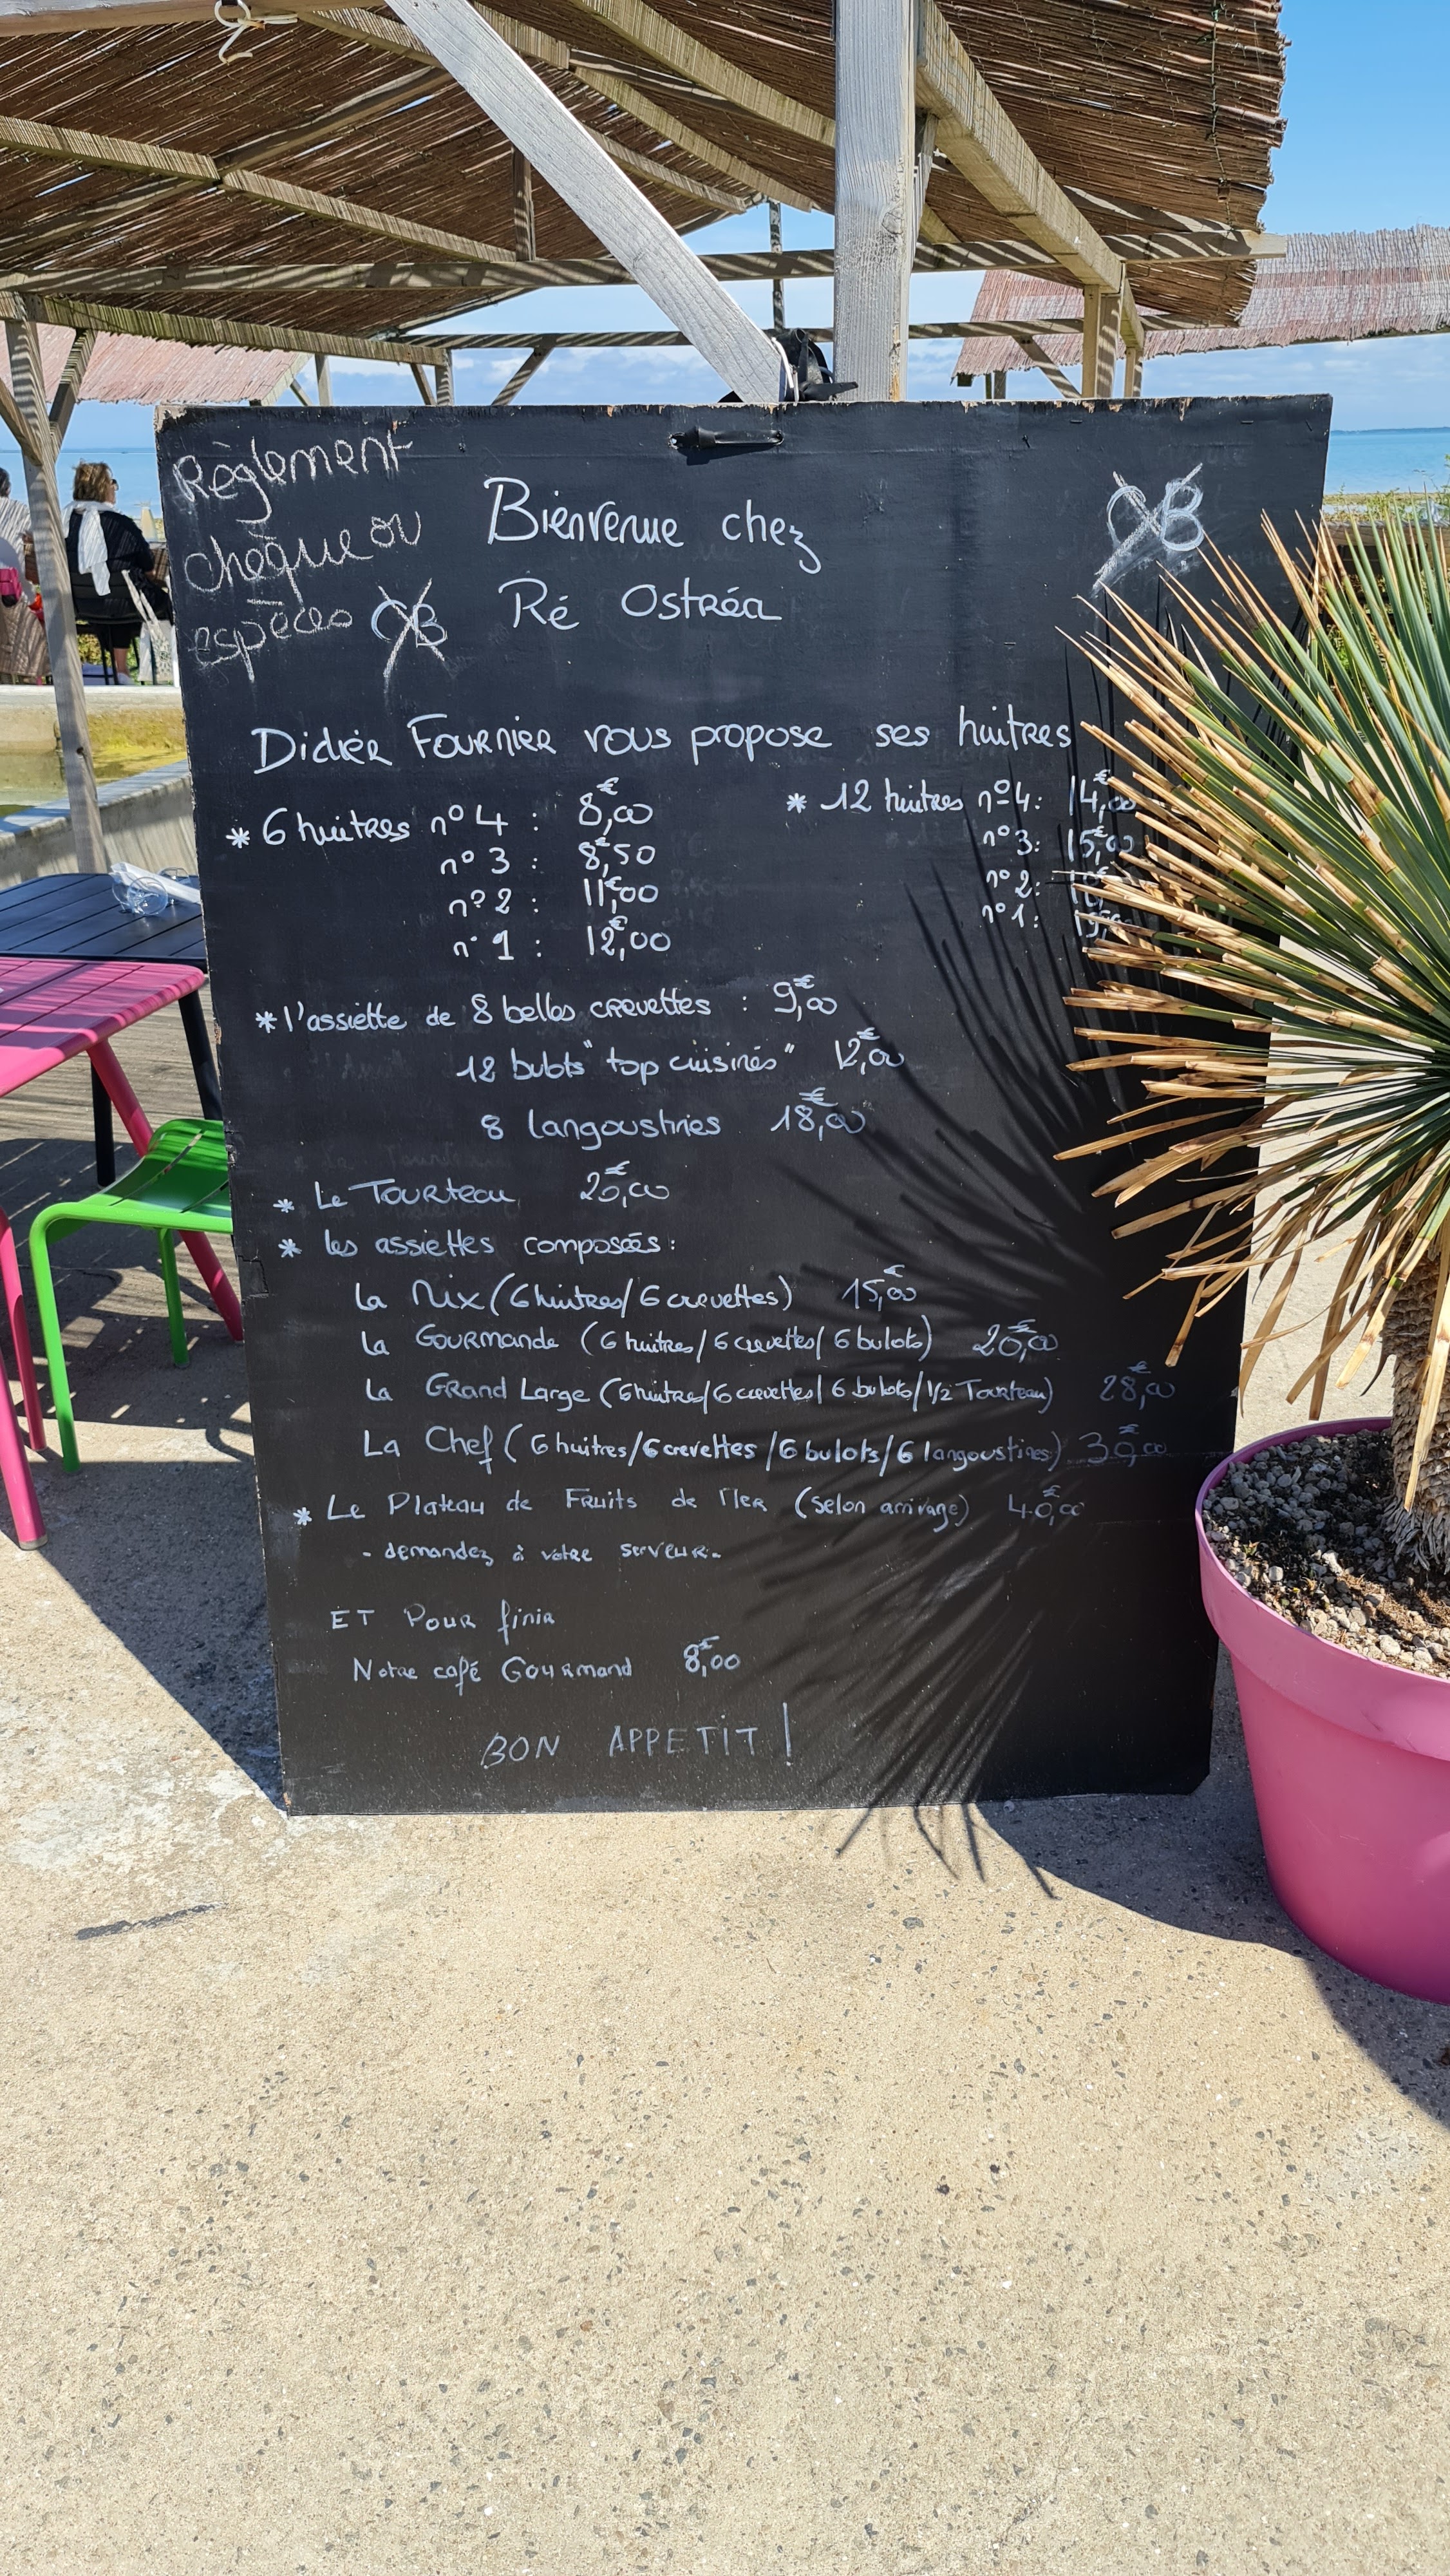 Règlement
chèque ou
espèces CB
Bienvenue chez
Ré Ostréa
CB
Didier Fournier vous propose ses huitres
* 6 huitres n°4 : 8,00€
n°3 : 8,50€
n°2 : 11,00€
n°1 : 12,00€
* 12 huitres n°4: 14,00€
n°3: 15,00€
n°2:
n°1:
* l'assiette de 8 belles crevettes : 9,00€
12 bulots "top cuisinés" 12,00€
8 langoustines 18,00€
* Le Tourteau 20,00€
* les assiettes composées:
La Mix (6 huitres/6 crevettes) 15,00€
La Gourmande (6 huitres/6 crevettes/6 bulots) 20,00€
La Grand Large (6 huitres/6 crevettes/6 bulots/1/2 Tourteau) 28,00€
La Chef (6 huitres/6 crevettes/6 bulots/6 langoustines) 30,00€
* Le Plateau de Fruits de Mer (selon arrivage) 40,00€
- demandez à votre serveur.
ET Pour finir
Notre café Gourmand 8,00€
BON APPETIT !